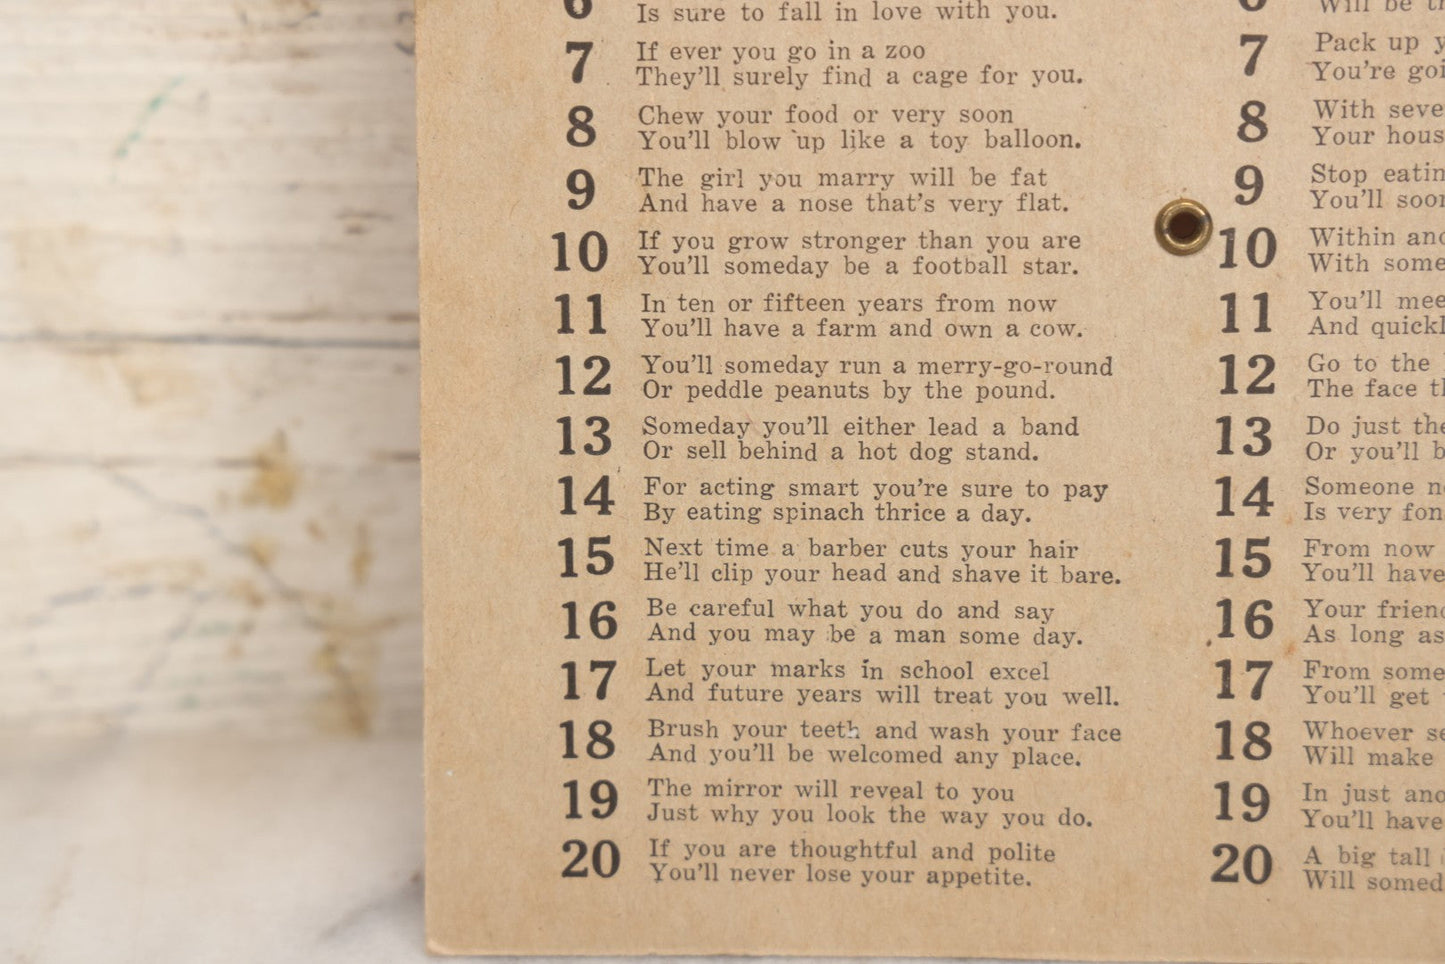 6
Is sure to fall in love with you.
7 If ever you go in a zoo
They'll surely find a cage for you.
8 Chew your food or very soon
You'll blow up like a toy balloon.
9 The girl you marry will be fat
And have a nose that's very flat.
10 If you grow stronger than you are
You'll someday be a football star.
11 In ten or fifteen years from now
You'll have a farm and own a cow.
12 You'll someday run a merry-go-round
Or peddle peanuts by the pound.
13 Someday you'll either lead a band
Or sell behind a hot dog stand.
14 For acting smart you're sure to pay
By eating spinach thrice a day.
15 Next time a barber cuts your hair
He'll clip your head and shave it bare.
16 Be careful what you do and say
And you may be a man some day.
17 Let your marks in school excel
And future years will treat you well.
18 Brush your teeth and wash your face
And you'll be welcomed any place.
19 The mirror will reveal to you
Just why you look the way you do.
20 If you are thoughtful and polite
You'll never lose your appetite.
6 Will be
7 Pack up
You're
8 With
Your
9 Stop
You'll
10 Within
With
11 You'll
And
12 Go to the
The face
13 Do just
Or you'll
14 Someone
Is very
15 From now
You'll have
16 Your
As long as
17 From
You'll get
18 Whoever
Will make
19 In just
You'll have
20 A big tall
Will